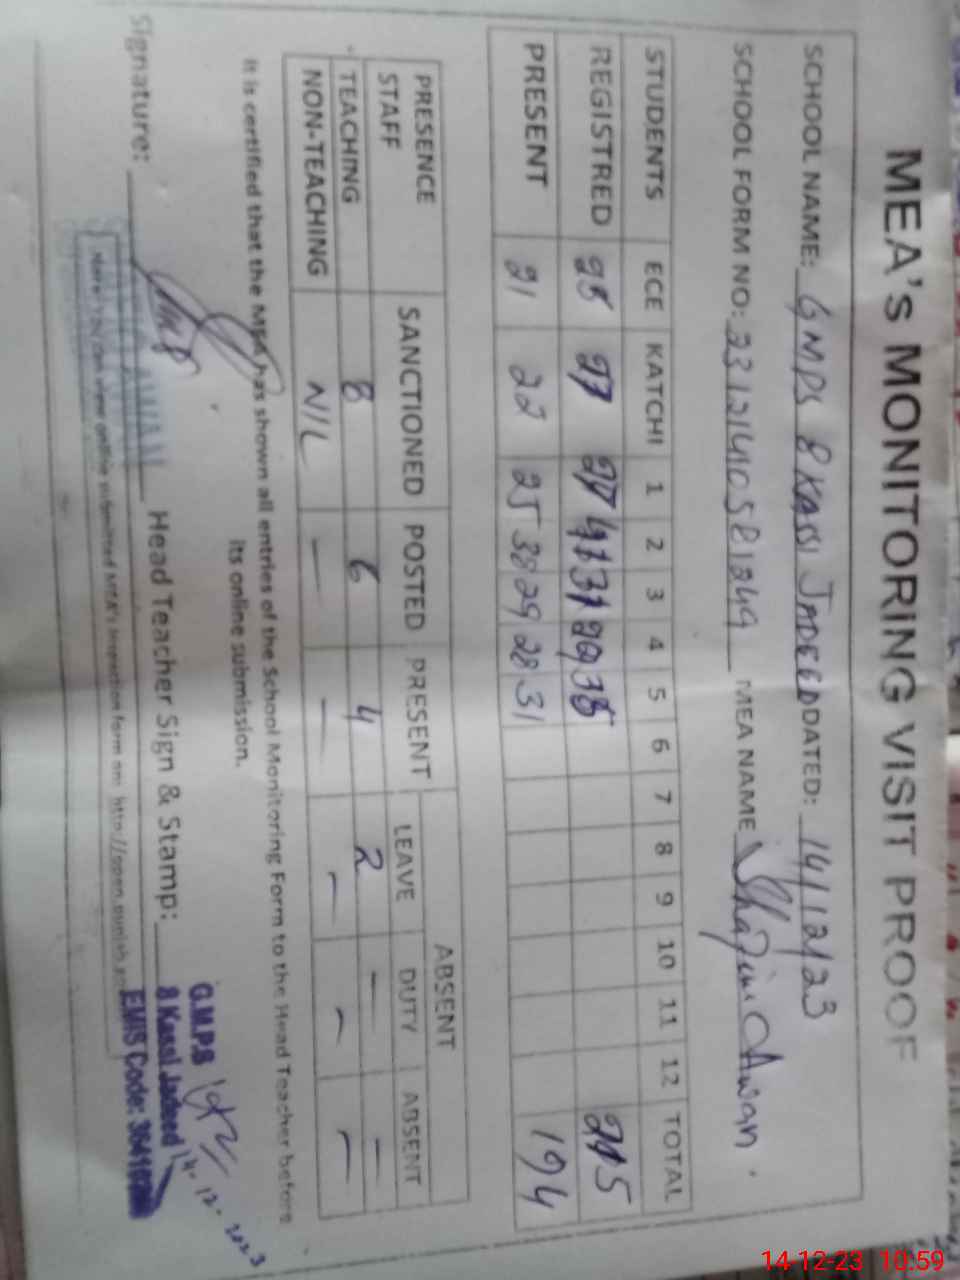 MEA's MONITORING VISIT PROOF
SCHOOL NAME: GMPS 8 KASSI JADEED DATED: 14/12/23
SCHOOL FORM NO: MEA NAME Awan
STUDENTS ECE KATCHI 1 2 3 4 5 6 7 8 9 10 11 12 TOTAL
REGISTRED 215
PRESENT 21 22 25 38 29 28 31 194
PRESENCE ABSENT
STAFF SANCTIONED POSTED PRESENT LEAVE DUTY ABSENT
TEACHING 8 6 4 2 — —
NON-TEACHING NIL — — — — —
It is certified that the MEA has shown all entries of the School Monitoring Form to the Head Teacher before
its online submission.
Signature: Head Teacher Sign & Stamp:
G.M.P.S
8 Kassi Jadeed
EMIS Code:
14.12.2023
Note: You can view online submitted MEA's inspection form on: http://open.punjab.
14-12-23 10:59